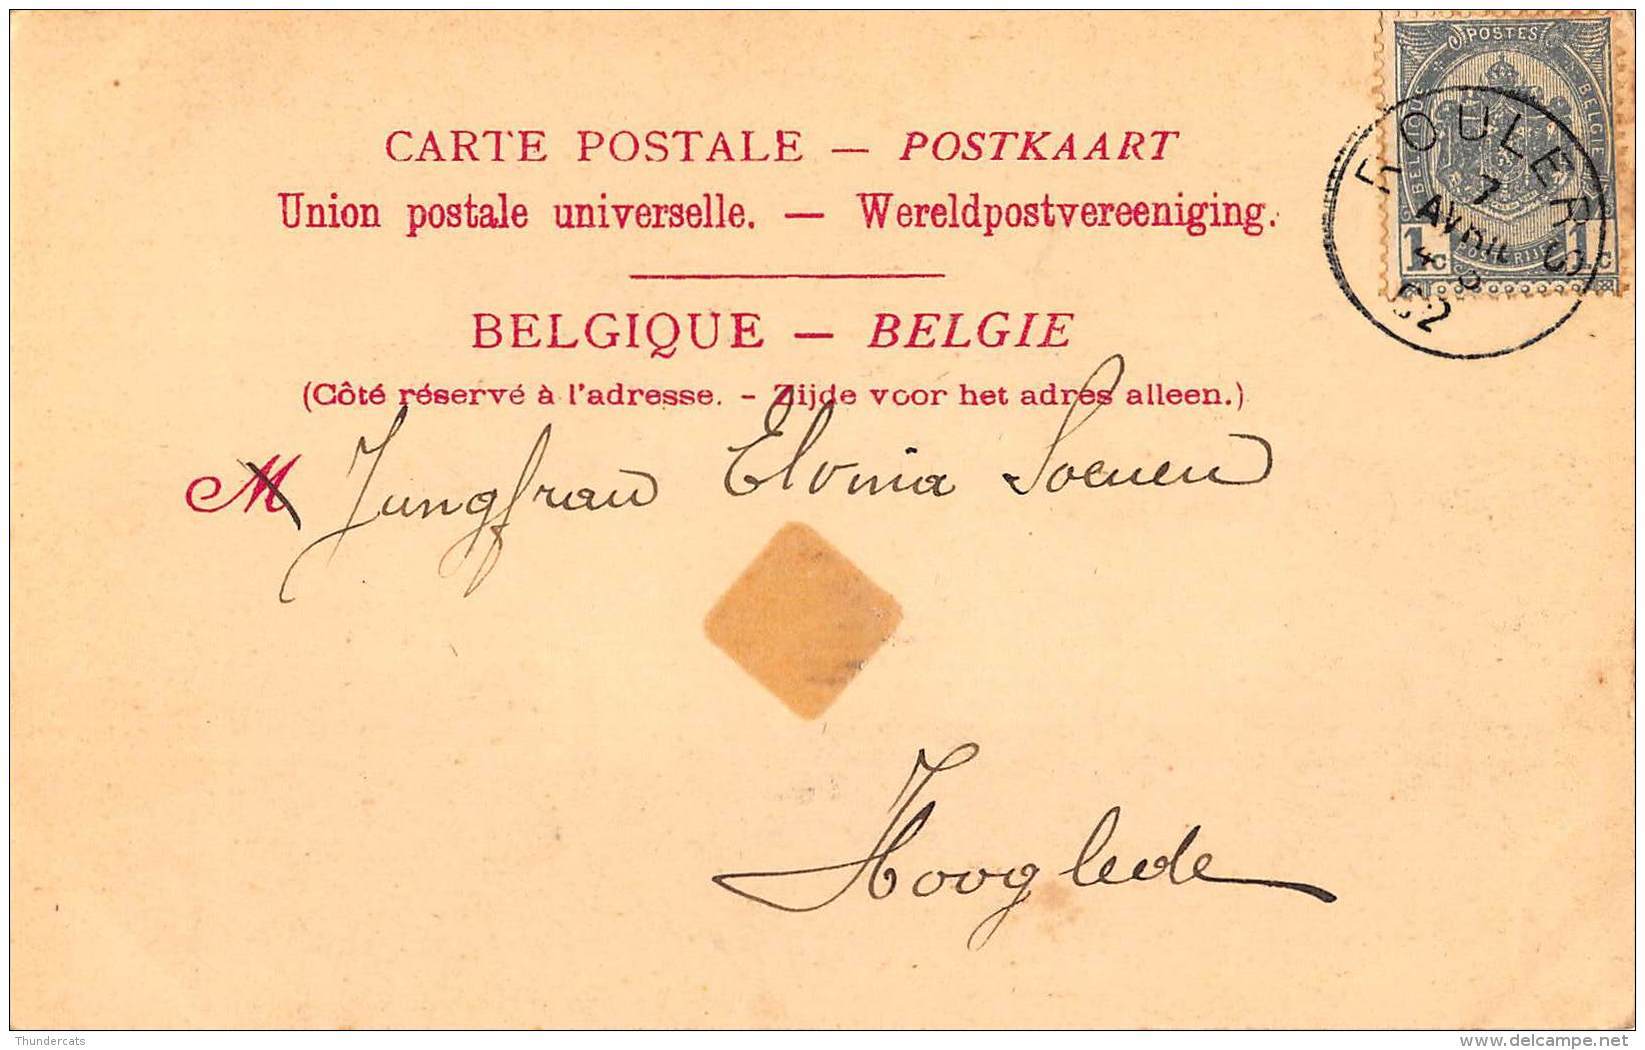 CARTE POSTALE — POSTKAART
Union postale universelle. — Wereldpostvereeniging.
BELGIQUE — BELGIE
(Côté réservé à l'adresse. - Zijde voor het adres alleen.)
M Jungfrau Elvinia Soenen
Hooglede
POSTES
BELGIQUE
BELGIË
1c 1c
POSTERIJEN
ROULERS
7
AVRIL
4-S
02
Thundercats
delcampe.net